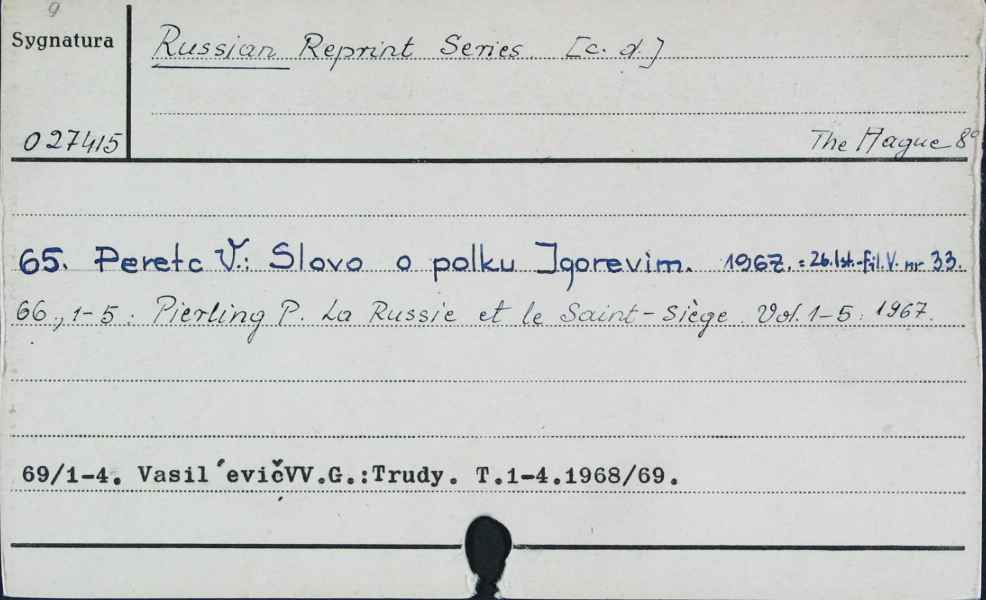 9
Sygnatura
Russian Reprint Series. [c. d.]
027415
The Hague 8°
65. Peretc V.: Slovo o polku Igorevim. 1967. = Zb. Ist.-fil. V. nr 33.
66, 1-5: Pierling P. La Russie et le Saint-Siège. Vol. 1-5. 1967.
69/1-4. Vasil´evičVV.G.:Trudy. T.1-4.1968/69.